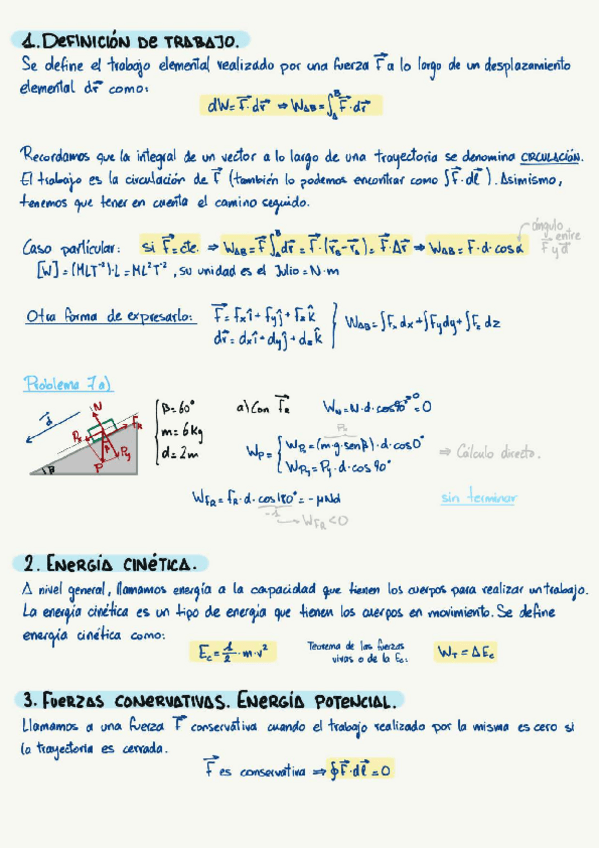 1. DEFINICIÓN DE TRABAJO.
Se define el trabajo elemental realizado por una fuerza F⃗ a lo largo de un desplazamiento
elemental dr⃗ como:
dW = F⃗·dr⃗ ⇒ W_AB = ∫_A^B F⃗·dr⃗
Recordamos que la integral de un vector a lo largo de una trayectoria se denomina CIRCULACIÓN.
El trabajo es la circulación de F⃗ (también lo podemos encontrar como ∫F⃗·dl⃗). Asimismo,
tenemos que tener en cuenta el camino seguido.
ángulo entre F⃗ y d⃗
Caso particular: si F⃗ = cte. ⇒ W_AB = F⃗ ∫_A^B dr⃗ = F⃗·(r⃗_B - r⃗_A) = F⃗·Δr⃗ ⇒ W_AB = F·d·cosα
[W] = (MLT⁻²)·L = ML²T⁻², su unidad es el Julio = N·m
Otra forma de expresarlo: F⃗ = Fxî + Fyĵ + Fzk̂
dr⃗ = dxî + dyĵ + dzk̂ } W_AB = ∫Fx dx + ∫Fy dy + ∫Fz dz
Problema 7a)
d⃗ N F_R Px Py P β
β = 60°
m = 6kg
d = 2m
a) Con F⃗_R W_N = N·d·cos90° = 0
Px
W_P = { W_Px = (m·g·senβ)·d·cos0°
W_Py = Py·d·cos90° ⇒ Cálculo directo.
W_FR = F_R·d·cos180° = -μNd
-1 → W_FR < 0
sin terminar
2. ENERGÍA CINÉTICA.
A nivel general, llamamos energía a la capacidad que tienen los cuerpos para realizar un trabajo.
La energía cinética es un tipo de energía que tienen los cuerpos en movimiento. Se define
energía cinética como:
E_c = 1/2·m·v²
Teorema de las fuerzas
vivas o de la Ec:
W_T = ΔE_c
3. FUERZAS CONERVATIVAS. ENERGÍA POTENCIAL.
Llamamos a una fuerza F⃗ conservativa cuando el trabajo realizado por la misma es cero si
la trayectoria es cerrada.
F⃗ es conservativa ⇒ ∮F⃗·dl⃗ = 0